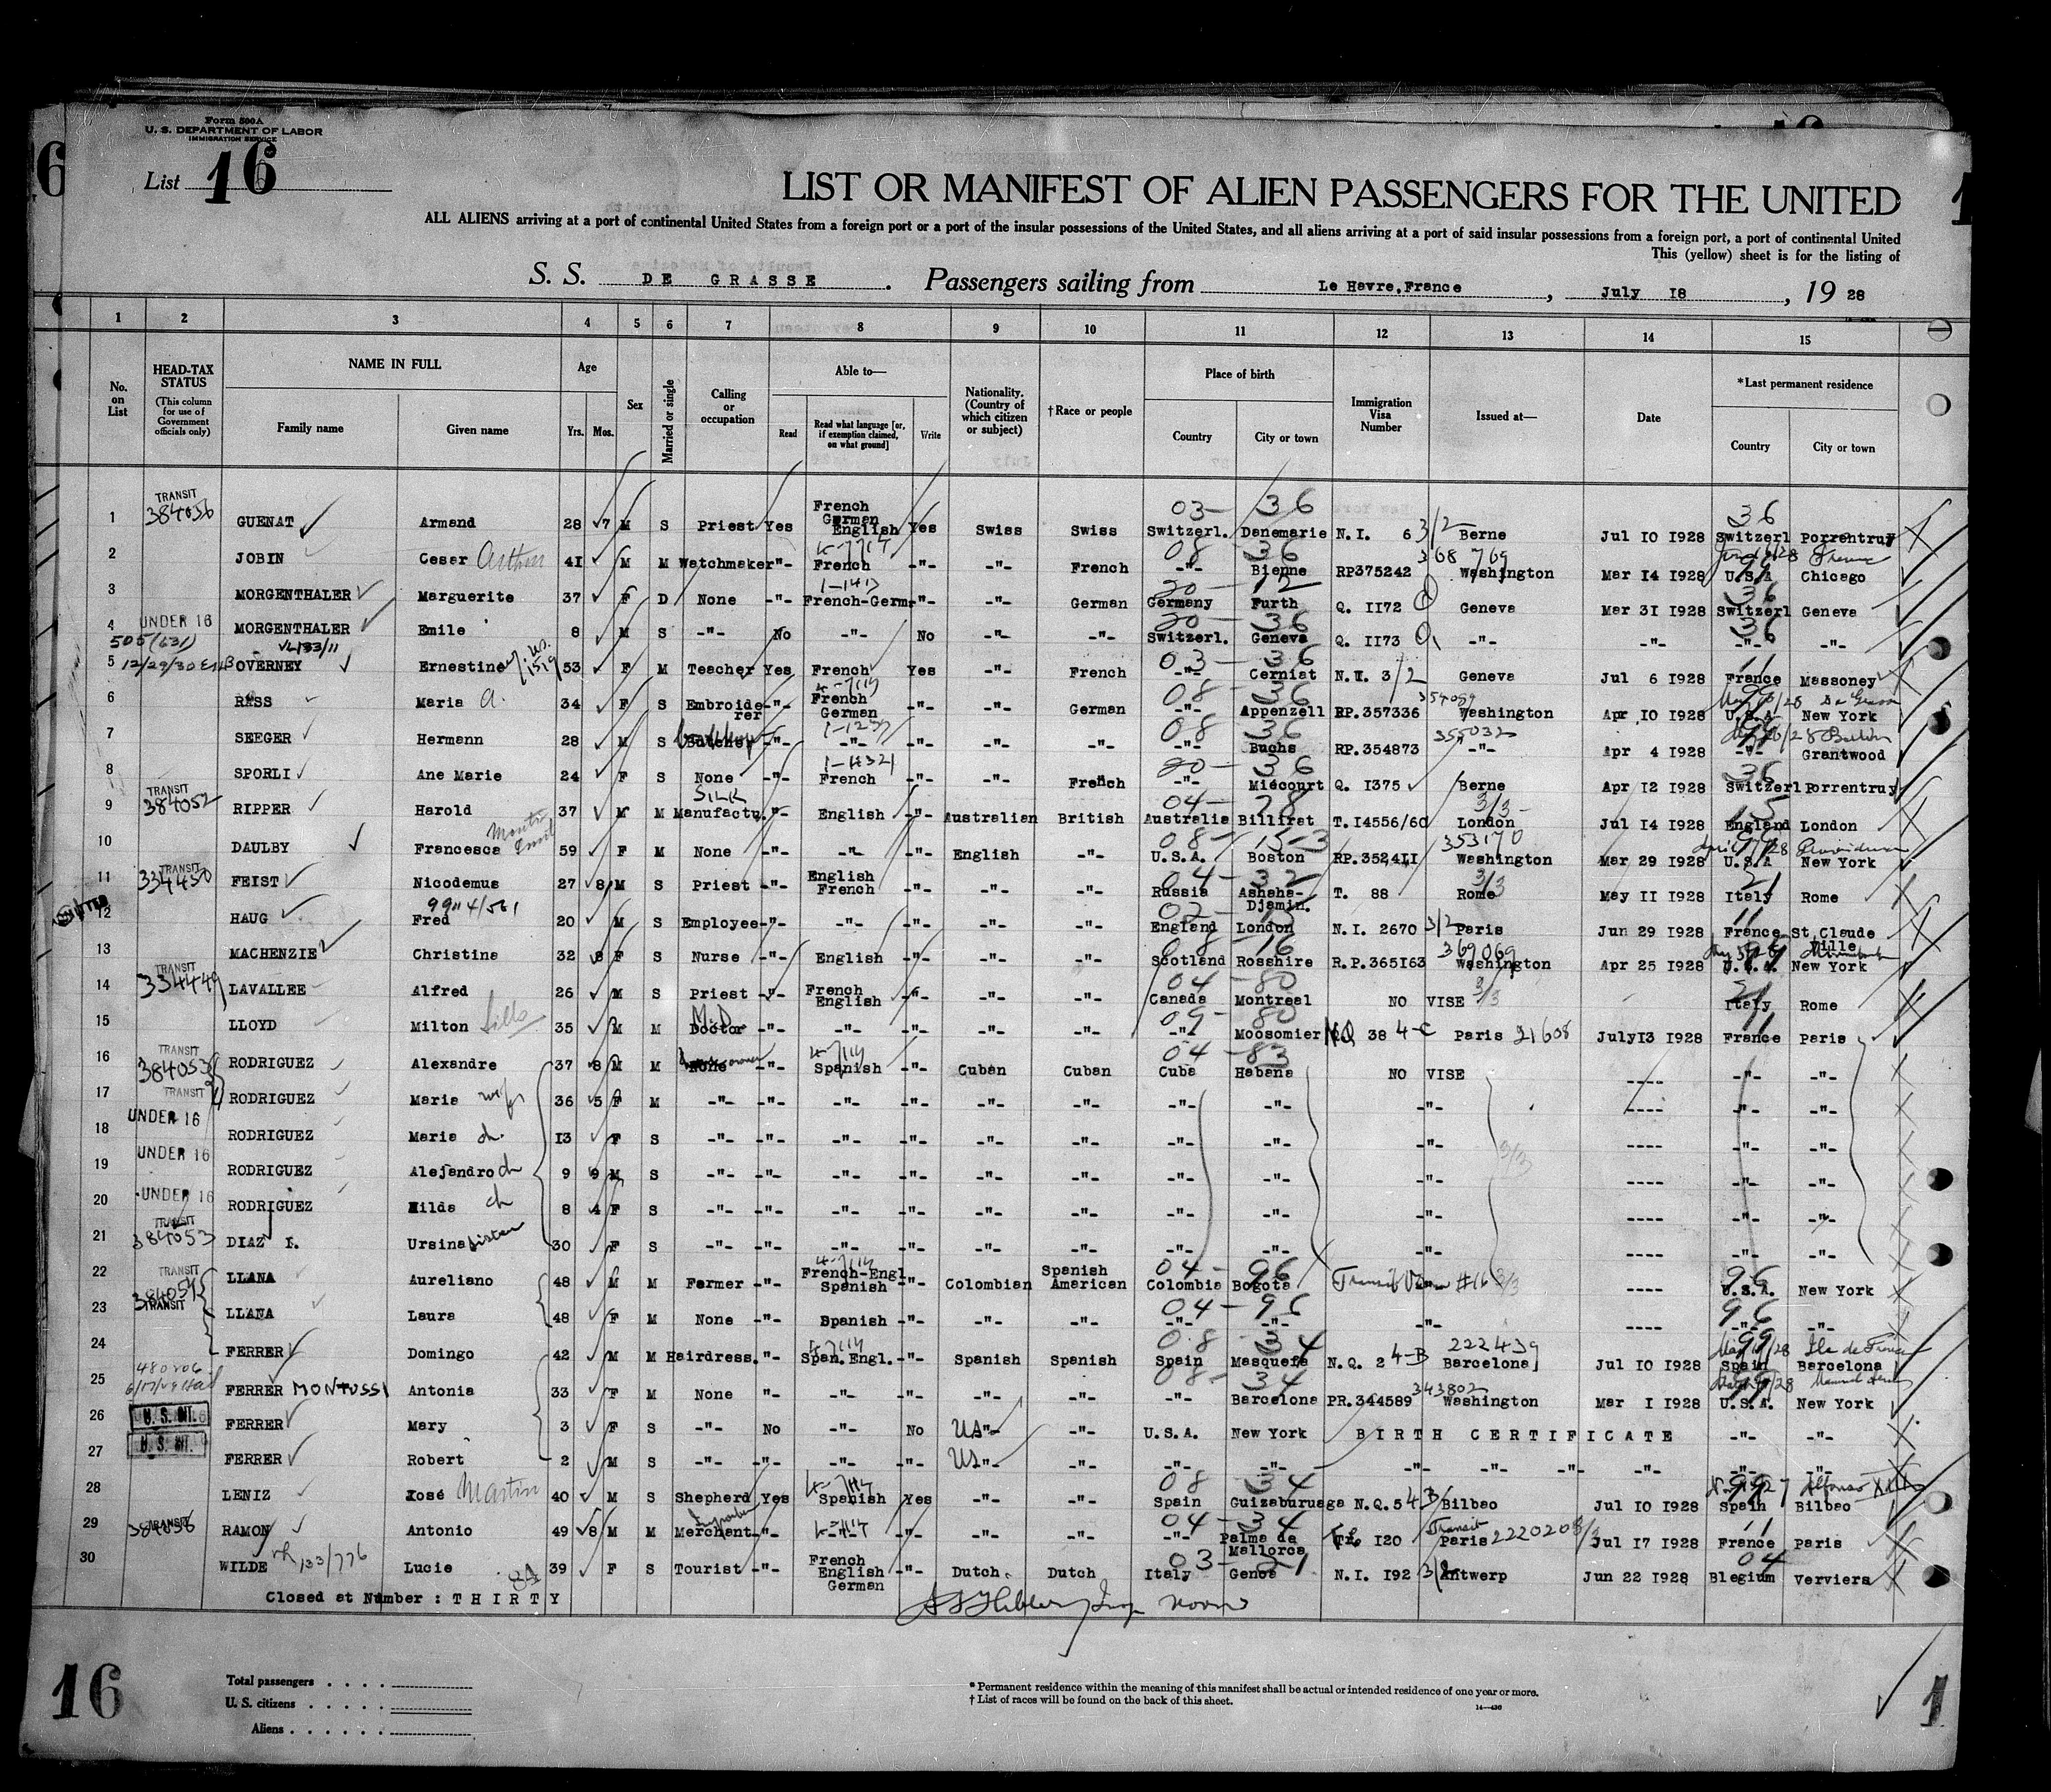 Form 500A
U. S. DEPARTMENT OF LABOR
IMMIGRATION SERVICE
List 16
LIST OR MANIFEST OF ALIEN PASSENGERS FOR THE UNITED
ALL ALIENS arriving at a port of continental United States from a foreign port or a port of the insular possessions of the United States, and all aliens arriving at a port of said insular possessions from a foreign port, a port of continental United
This (yellow) sheet is for the listing of
S. S. DE GRASSE. Passengers sailing from Le Havre,France, July 18, 1928
1 2 3 4 5 6 7 8 9 10 11 12 13 14 15
No. on List
HEAD-TAX STATUS
(This column for use of Government officials only)
NAME IN FULL
Family name Given name
Age
Yrs. Mos.
Sex
Married or single
Calling or occupation
Able to—
Read
Read what language [or, if exemption claimed, on what ground]
Write
Nationality. (Country of which citizen or subject)
† Race or people
Place of birth
Country City or town
Immigration Visa Number
Issued at—
Date
*Last permanent residence
Country City or town
1 TRANSIT 384056 GUENAT Armand 28 7 M S Priest Yes French German English Yes Swiss Swiss 03- 36 Switzerl. Danemarie N.I. 6 3/2 Berne Jul 10 1928 36 Switzerl Porrentruy
2 JOBIN Cesar Arthur 41 M M Watchmaker -"- French -"- -"- French 08- 36 -"- Bienne RP375242 368769 Washington Mar 14 1928 U.S.A. Chicago
3 MORGENTHALER Marguerite 37 F D None -"- French-Germ. -"- -"- German 20- 12 Germany Furth Q. 1172 Geneva Mar 31 1928 36 Switzerl Geneva
4 UNDER 16 MORGENTHALER Emile 8 M S -"- No -"- No -"- -"- 20- 36 Switzerl. Geneva Q. 1173 -"- -"- 36 -"- -"-
5 505(631) 12/29/30 OVERNEY Ernestine 53 F M Teacher Yes French Yes -"- French 03- 36 -"- Cerniat N.I. 3/2 Geneva Jul 6 1928 11 France Massoney
6 RESS Maria A. 34 F S Embroiderrer -"- French German -"- -"- German 08- 36 -"- Appenzell RP.357336 354089 Washington Apr 10 1928 U.S.A. New York
7 SEEGER Hermann 28 M S Butcher -"- -"- -"- -"- -"- 08 36 -"- Buchs RP.354873 355032 -"- Apr 4 1928 -"- Grantwood
8 SPORLI Ane Marie 24 F S None -"- French -"- -"- French 20- 36 -"- Miécourt Q. 1375 Berne Apr 12 1928 36 Switzerl Porrentruy
9 TRANSIT 384052 RIPPER Harold 37 M M SILK Manufactu. -"- English -"- Australian British 04- 28 Australia Billirat T.14556/60 3/3 London Jul 14 1928 15 England London
10 DAULBY Francesca 59 F M None -"- -"- -"- English -"- 08- 15-3 U.S.A. Boston RP.352411 353170 Washington Mar 29 1928 U.S.A New York
11 TRANSIT 334450 FEIST Nicodemus 27 8 M S Priest -"- English French -"- -"- -"- 04- 32 Russia Ashaha-Djamin. T. 88 3/3 Rome May 11 1928 21 Italy Rome
12 HAUG Fred 20 M S Employee -"- -"- -"- -"- -"- 02- England London N.I. 2670 3/2 Paris Jun 29 1928 11 France St Claude Ville
13 MACHENZIE Christina 32 8 F S Nurse -"- English -"- -"- -"- 08- 16 Scotland Rosshire R.P.365163 369069 Washington Apr 25 1928 U.S.A. New York
14 TRANSIT 334449 LAVALLEE Alfred 26 M S Priest -"- French English -"- -"- -"- 04- 80 Canada Montreal NO VISE 3/3 21 Italy Rome
15 LLOYD Milton 35 M M M.D. Doctor -"- -"- -"- -"- -"- 09- 80 -"- Moosomier 38 4-c Paris 21608 July13 1928 11 France Paris
16 TRANSIT 384053 RODRIGUEZ Alexandre 37 8 M M None -"- Spanish -"- Cuban Cuban 04 -83 Cuba Habana NO VISE ---- -"- -"-
17 TRANSIT RODRIGUEZ Maria wife 36 5 F M -"- -"- -"- -"- -"- -"- -"- -"- -"- ---- -"- -"-
18 UNDER 16 RODRIGUEZ Maria ch. 13 F S -"- -"- -"- -"- -"- -"- -"- -"- -"- ---- -"- -"-
19 UNDER 16 RODRIGUEZ Alejandro ch 9 9 M S -"- -"- -"- -"- -"- -"- -"- -"- -"- 3/3 ---- -"- -"-
20 UNDER 16 RODRIGUEZ Hilda ch 8 4 F S -"- -"- -"- -"- -"- -"- -"- -"- -"- ---- -"- -"-
21 TRANSIT 384053 DIAZ F. Ursina sister 30 F S -"- -"- -"- -"- -"- -"- -"- -"- -"- ---- -"- -"-
22 TRANSIT 384054 LLANA Aureliano 48 M M Farmer -"- French-Engl Spanish -"- Colombian Spanish American 04- 96 Colombia Bogota Transit Visa #16 3/3 ---- 96 U.S.A. New York
23 TRANSIT LLANA Laura 48 F M None -"- Spanish -"- -"- -"- 04- 96 -"- -"- -"- ---- 96 -"- -"-
24 FERRER Domingo 42 M M Hairdress. -"- Span.Engl. -"- Spanish Spanish 08 34 Spain Masquefa N.Q. 2 4-B 222439 Barcelona Jul 10 1928 Spain Barcelona
25 480206 FERRER MONTUSSI Antonia 33 F M None -"- -"- -"- -"- -"- 08- 34 -"- Barcelona PR.344589 343802 Washington Mar 1 1928 U.S.A. New York
26 FERRER Mary 3 F S -"- No -"- No US -"- -"- U.S.A. New York BIRTH CERTIFICATE -"- -"-
27 FERRER Robert 2 M S -"- -"- -"- -"- US -"- -"- -"- -"- -"- -"- -"- -"- -"- -"-
28 LENIZ José Martin 40 M S Shepherd Yes Spanish Yes -"- -"- 08 34 Spain Guizaburuaga N.Q.5 4B Bilbao Jul 10 1928 Spain Bilbao
29 TRANSIT RAMON Antonio 49 8 M M Merchant -"- -"- -"- -"- -"- 04- 34 -"- Palma de Mallorca 120 Transit Paris 222020 3/3 Jul 17 1928 11 France Paris
30 WILDE 133/776 Lucie 39 F S Tourist -"- French English German -"- Dutch Dutch 03- 21 Italy Genoa N.I. 192 3/2 Antwerp Jun 22 1928 04 Blegium Verviers
Closed at Number : THIRTY
16
Total passengers
U. S. citizens
Aliens
* Permanent residence within the meaning of this manifest shall be actual or intended residence of one year or more.
† List of races will be found on the back of this sheet.
14—430
1